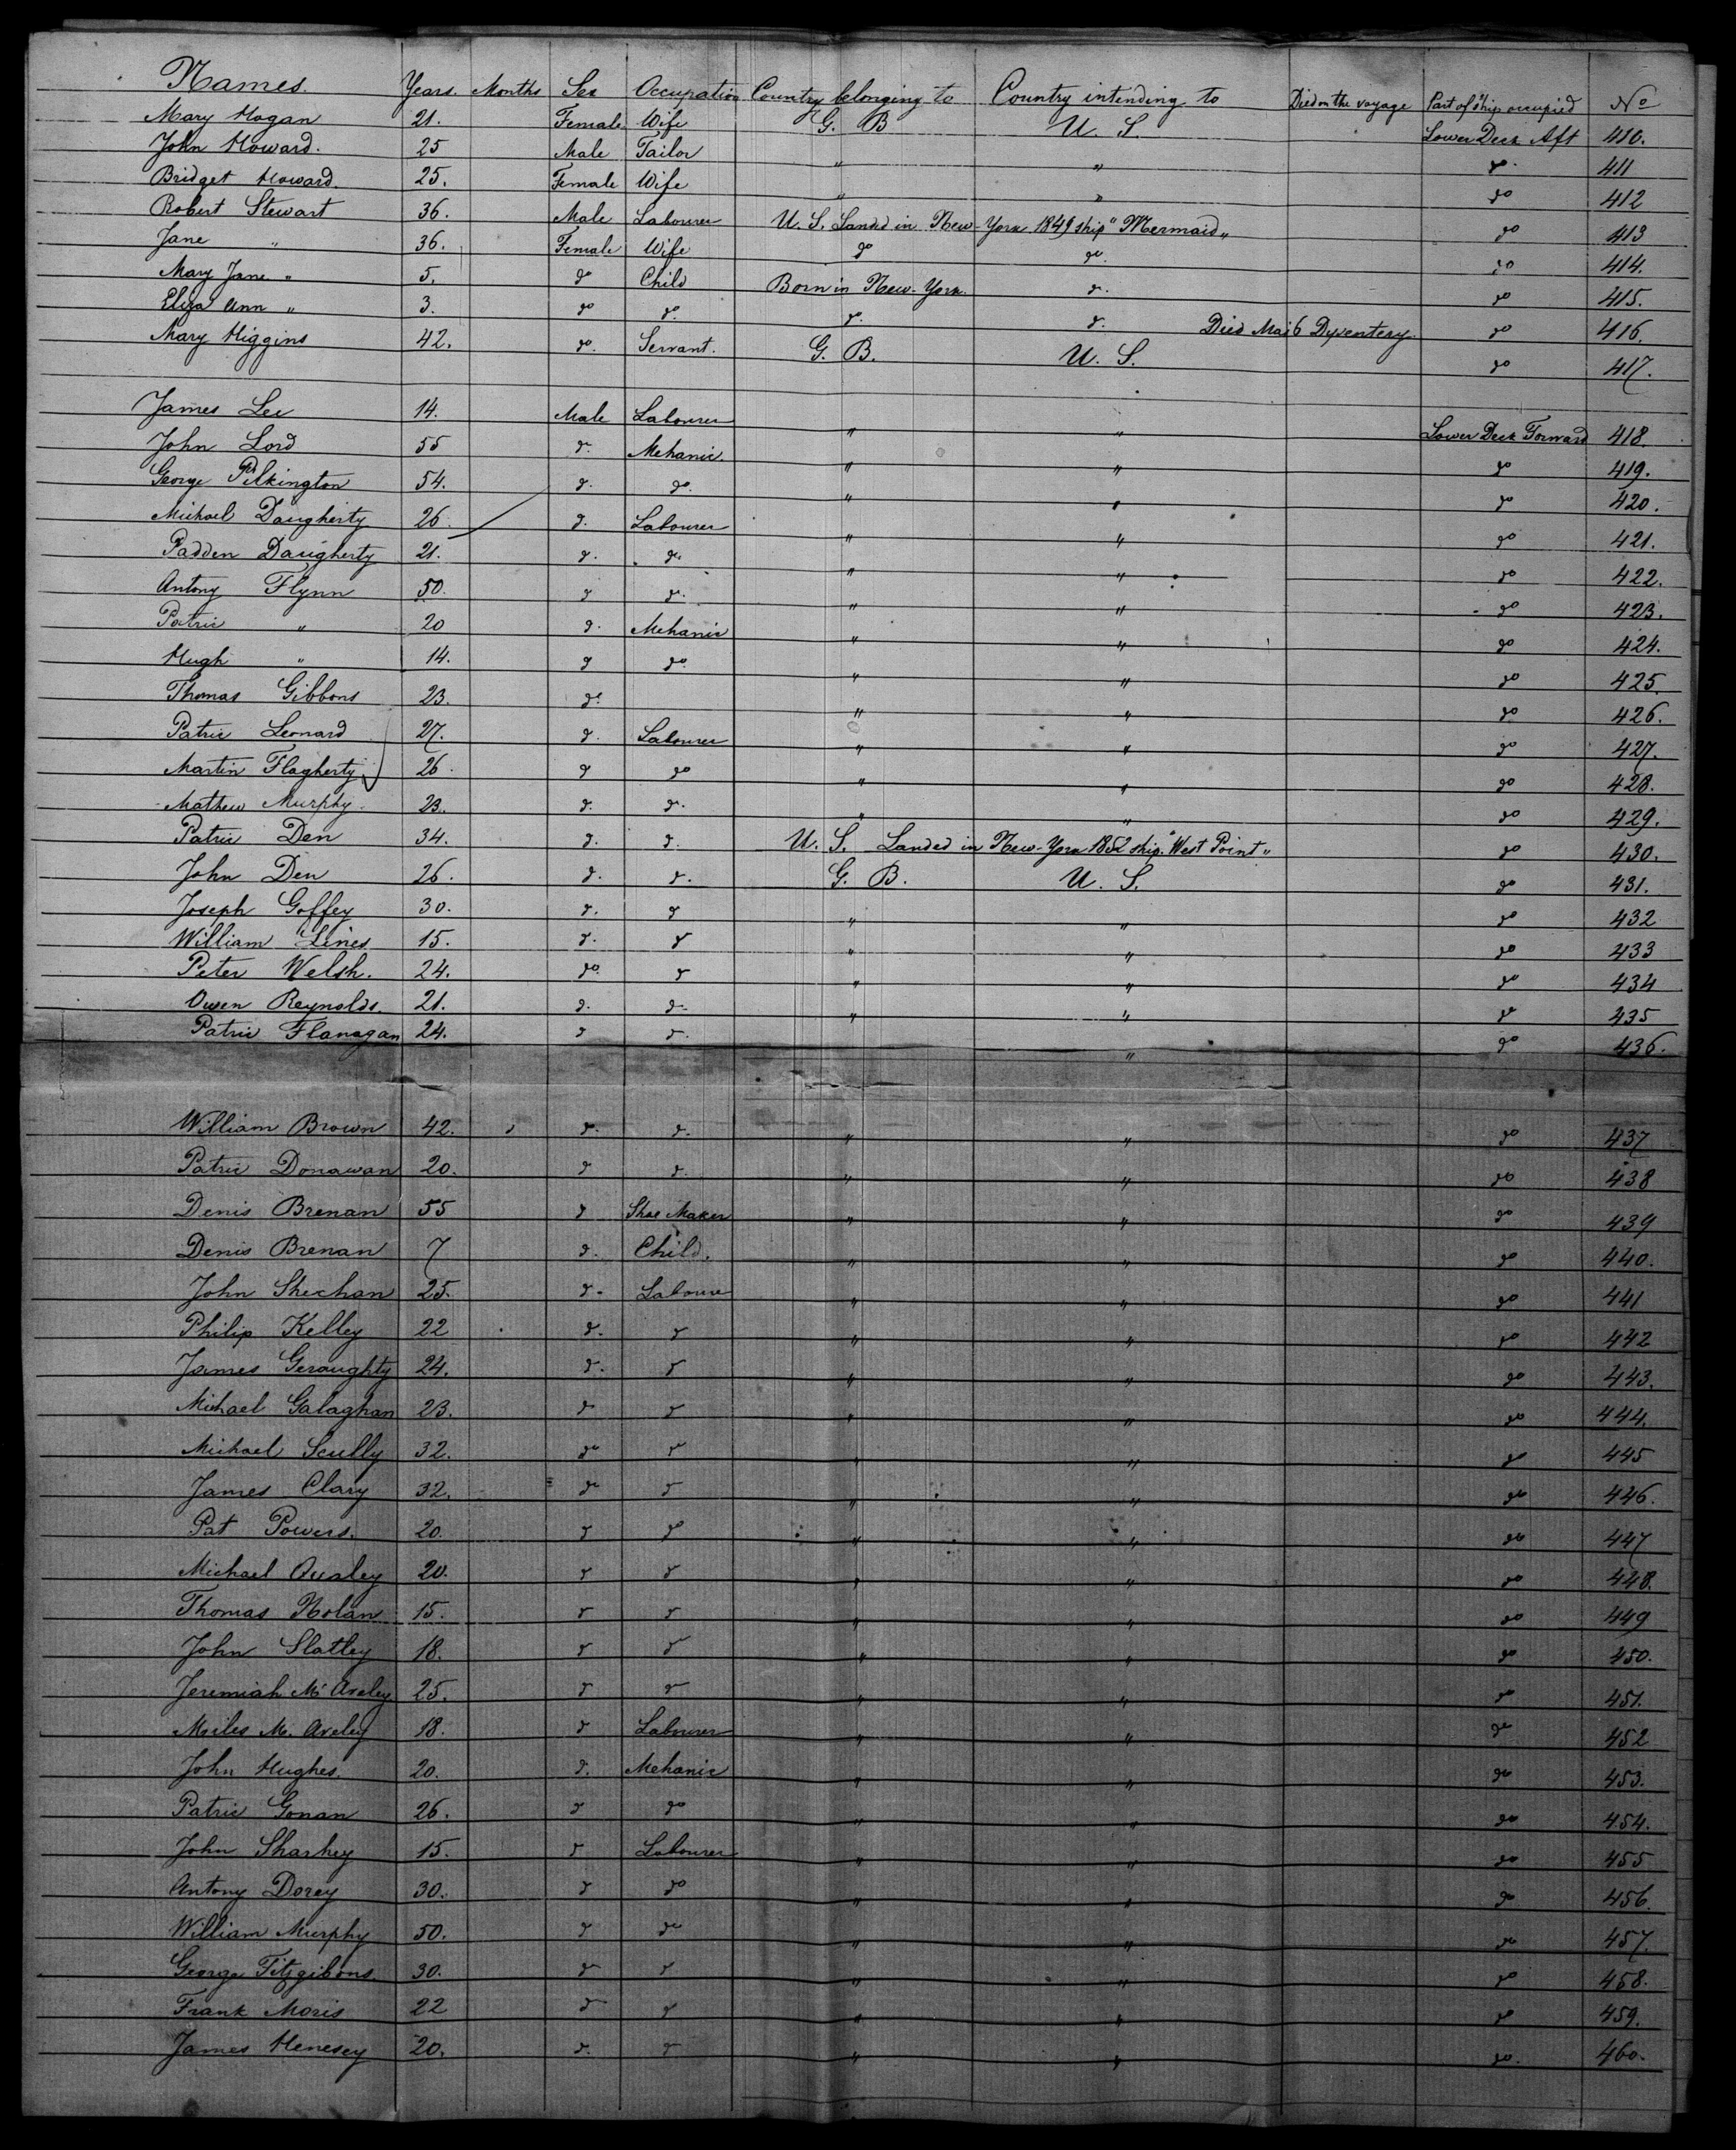 Names. Years. Months Sex Occupation Country belonging to Country intending to Died on the voyage Part of ship occupied No
Mary Hogan 21. Female Wife G. B U. S. Lower Deck Aft 410.
John Howard. 25 Male Tailor " " do. 411
Bridget Howard. 25. Female Wife " " do 412
Robert Stewart 36. Male Labourer U. S. Landed in New-York 1849 ship "Mermaid" do 413
Jane " 36. Female Wife do do. do 414.
Mary Jane " 5. do Child Born in New-York. do. do 415.
Eliza Ann " 3. do do. do. do. Died Mai 6 Dysentery. do 416.
Mary Higgins 42. do. Servant. G. B. U. S. do 417.
James Lee 14. Male Labourer " " Lower Deck Forward 418.
John Lord 55 do. Mehanic. " " do 419.
George Pilkington 54. do. do. " " do 420.
Michael Daugherty 26. do. Labourer " " do 421.
Padden Daugherty 21. do. do. " " do 422.
Antony Flynn 50. do do. " " do 423.
Patric " 20 do. Mehanic " " do 424.
Hugh " 14. do do. " " do 425.
Thomas Gibbons 23. do. " " do 426.
Patric Leonard 27. do. Labourer " " do 427.
Martin Flagherty 26. do do " " do 428.
Mathew Murphy. 23. do. do. " " do 429.
Patric Den 34. do. do. U. S. Landed in New-York 1852 ship "West Point" do 430.
John Den 26. do. do. G. B. U. S. do 431.
Joseph Goffey 30. do. do " " do 432
William Lines 15. do. do " " do 433
Peter Welsh. 24. do. do " " do 434
Owen Reynolds. 21. do. do. " " do 435
Patric Flanagan 24. do do. " do 436.
William Brown 42. do. do. " " do 437
Patric Donawan 20. do do. " " do 438
Denis Brenan 55 do Shoe Maker " " do 439
Denis Brenan 7 do. Child. " " do 440.
John Sheehan 25. do. Laboure " " do 441
Philip Kelley 22 do. do " " do 442
James Geraughty 24. do. do " " do 443.
Michael Galaghan 23. do do " " do 444.
Michael Scully 32. do do " " do 445
James Clary 32. do do " " do 446.
Pat Powers. 20. do do " " do 447
Michael 20. do do " " do 448.
Thomas Nolan 15. do do " " do 449
John Slatley 18. do do " " do 450.
Jeremiah Mc Aveley 25. do do " " do 451.
Miles Mc. Aveley 18. do Labourer " " do 452
John Hughes. 20. do. Mehanic " " do 453.
Patric Gonan 26. do do " " do 454.
John Sharkey 15. do Labourer " " do 455
Antony Dorey 30. do do " " do 456.
William Murphy 50. do do " " do 457.
George Fitzgibons. 30. do do " " do 458.
Frank Moris 22 do do " " do 459.
James Henesey 20. do. do " " do. 460.